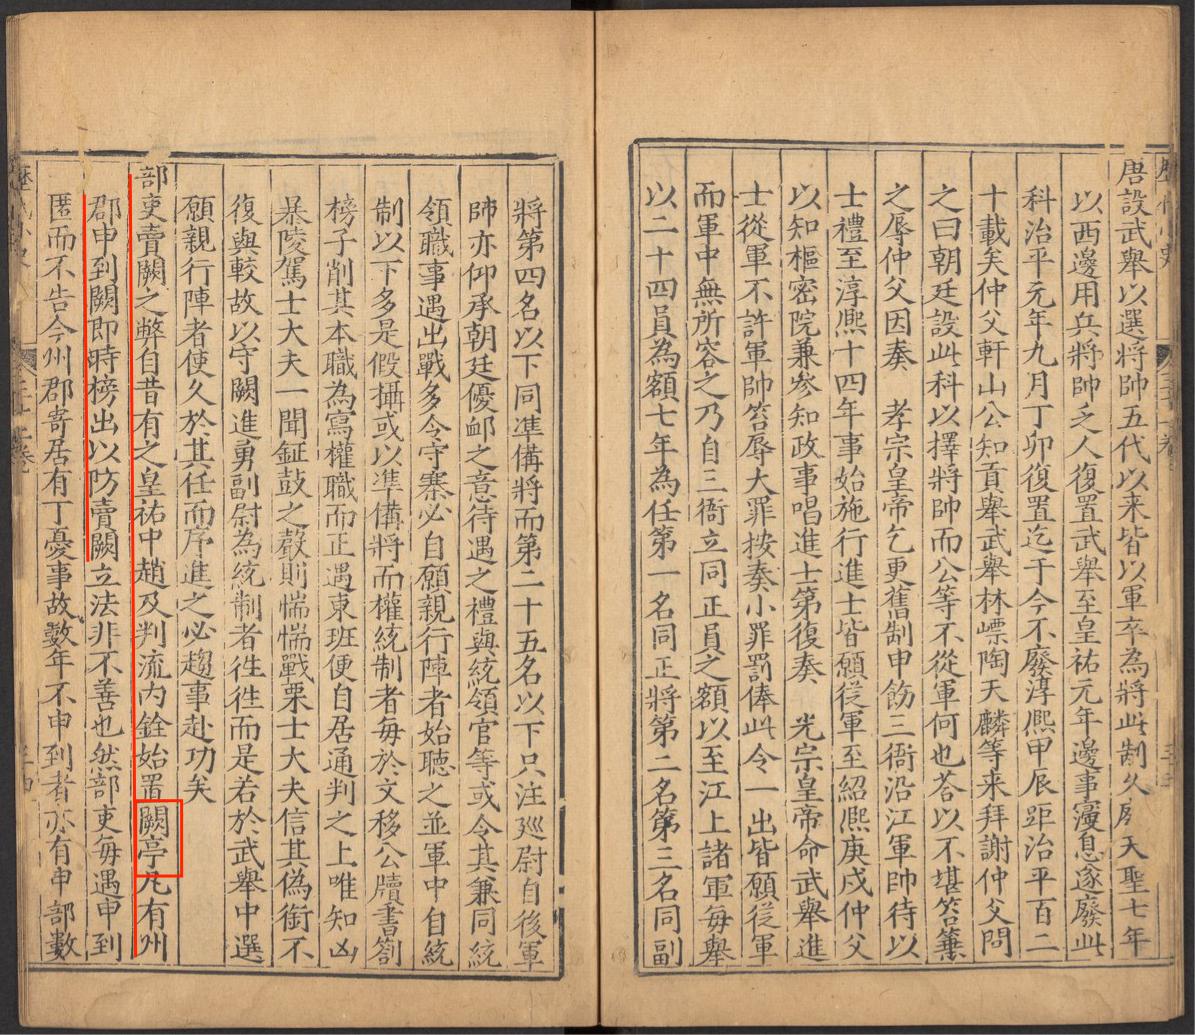 唐設武舉以選將帥五代以来皆以軍卒為將此制久廢天聖七年
以西邊用兵將帥乏人復置武舉至皇祐元年邊事寖息遂廢此
科治平元年九月丁卯復置迄于今不廢淳熈甲辰距治平百二
十載矣仲父軒山公知貢舉武舉林嶛陶天麟等来拜謝仲父問
之曰朝廷設此科以擇將帥而公等不從軍何也荅以不堪笞箠
之辱仲父因奏 孝宗皇帝乞更舊制申飭三衙沿江軍帥待以
士禮至淳熈十四年事始施行進士皆願從軍至紹熈庚戍仲父
以知樞密院兼参知政事唱進士第復奏 光宗皇帝命武舉進
士從軍不許軍帥笞辱大罪按奏小罪罰俸此令一出皆願從軍
而軍中無所容之乃自三衙立同正員之額以至江上諸軍每舉
以二十四員為額七年為任第一名同正將第二名第三名同副
將第四名以下同凖俻將而第二十五名以下只注廵尉自後軍
帥亦仰承朝廷優䘏之意待遇之禮與統領官等或令其兼同統
領職事遇出戰多令守寨必自願親行陣者始聴之並軍中自統
制以下多是假攝或以凖俻將而權統制者每於文移公牘書劄
榜子削其本職為寫權職而正遇東班便自居通判之上唯知凶
暴陵駕士大夫一聞鉦鼓之聲則惴惴戰栗士大夫信其偽銜不
復與較故以守闕進勇副尉為統制者徃徃而是若於武舉中選
願親行陣者使久於其任而序進之必趨事赴功矣
部吏賣闕之弊自昔有之皇祐中趙及判流内銓始置闕亭凡有州
郡申到闕即時榜出以防賣闕立法非不善也然部吏每遇申到
匿而不告今州郡寄居有丁憂事故數年不申到者亦有申部數